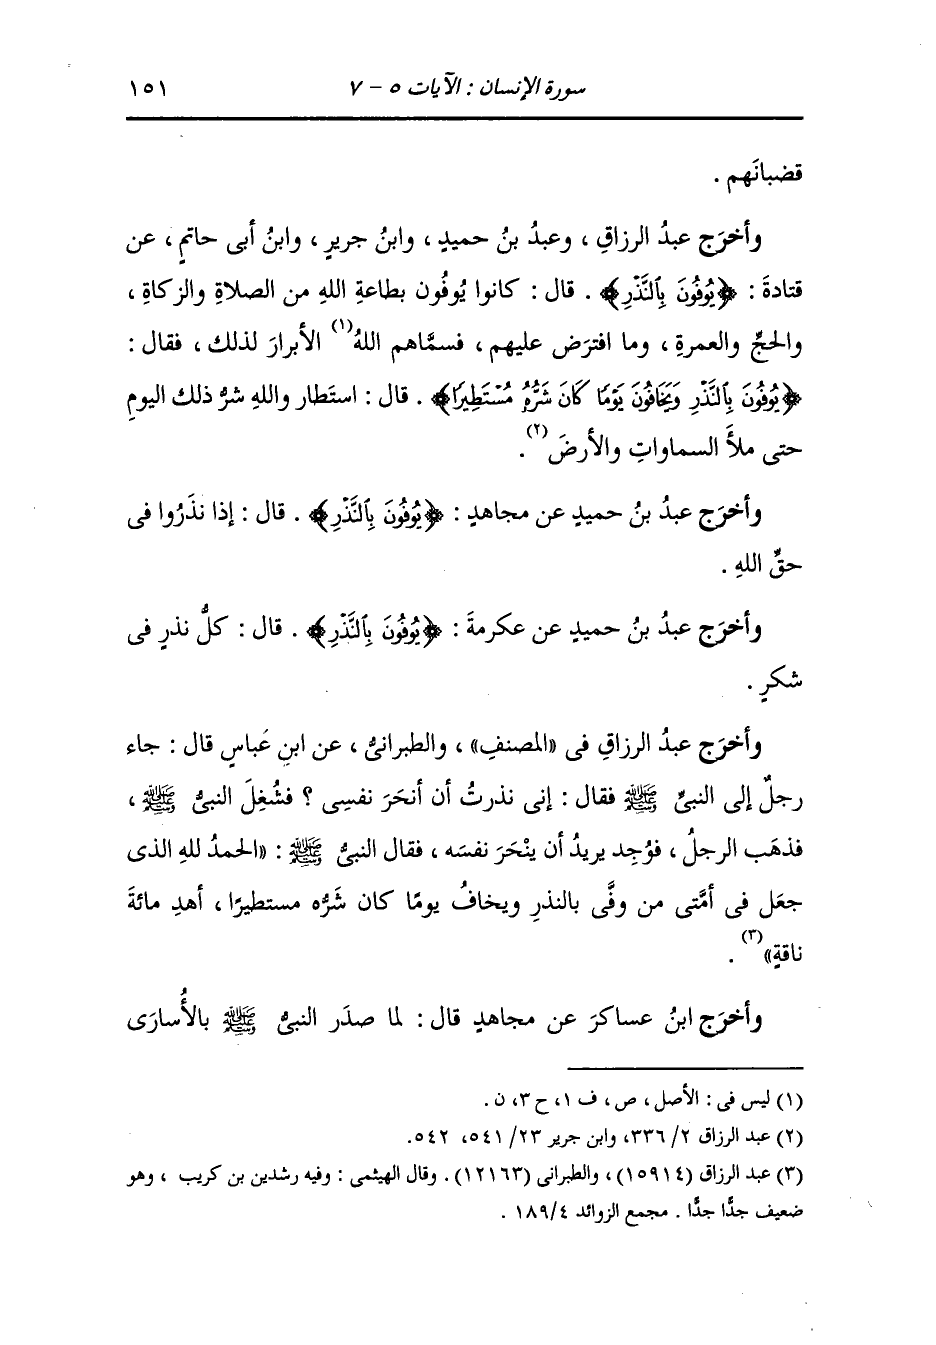 سورة الإنسان : الآيات ٥ - ٧ ١٥١
قضبانَهم .
وأخرَج عبدُ الرزاقِ ، وعبدُ بنُ حميدٍ ، وابنُ جريرٍ ، وابنُ أبى حاتمٍ ، عن
قتادةَ : ﴿يُوفُونَ بِٱلنَّذْرِ﴾ . قال : كانوا يُوفُون بطاعةِ اللهِ من الصلاةِ والزكاةِ ،
والحجِّ والعمرةِ ، وما افترَض عليهم ، فسمَّاهم اللهُ(١) الأبرارَ لذلك ، فقال :
﴿يُوفُونَ بِٱلنَّذْرِ وَيَخَافُونَ يَوْمًا كَانَ شَرُّهُۥ مُسْتَطِيرًا﴾ . قال : استَطار واللهِ شرُّ ذلك اليومِ
حتى ملأَ السماواتِ والأرضَ(٢) .
وأخرَج عبدُ بنُ حميدٍ عن مجاهدٍ : ﴿يُوفُونَ بِٱلنَّذْرِ﴾ . قال : إذا نذَرُوا فى
حقِّ اللهِ .
وأخرَج عبدُ بنُ حميدٍ عن عكرمةَ : ﴿يُوفُونَ بِٱلنَّذْرِ﴾ . قال : كلُّ نذرٍ فى
شكرٍ .
وأخرَج عبدُ الرزاقِ فى «المصنفِ» ، والطبرانىُّ ، عن ابنِ عَباسٍ قال : جاء
رجلٌ إلى النبىِّ ﷺ فقال : إنى نذرتُ أن أنحَرَ نفسِى ؟ فشُغِلَ النبىُّ ﷺ ،
فذهَب الرجلُ ، فوُجِد يريدُ أن ينْحَرَ نفسَه ، فقال النبىُّ ﷺ : «الحمدُ للهِ الذى
جعَل فى أمَّتى من وفَّى بالنذرِ ويخافُ يومًا كان شَرُّه مستطيرًا ، أهدِ مائةَ
ناقةٍ»(٣) .
وأخرَج ابنُ عساكرَ عن مجاهدٍ قال : لما صدَر النبىُّ ﷺ بالأُسارَى
(١) ليس فى : الأصل ، ص ، ف ١ ، ح ٣ ، ن .
(٢) عبد الرزاق ٢/ ٣٣٦، وابن جرير ٢٣/ ٥٤١، ٥٤٢.
(٣) عبد الرزاق (١٥٩١٤) ، والطبرانى (١٢١٦٣) . وقال الهيثمى : وفيه رشدين بن كريب ، وهو
ضعيف جدًّا جدًّا . مجمع الزوائد ٤/ ١٨٩ .